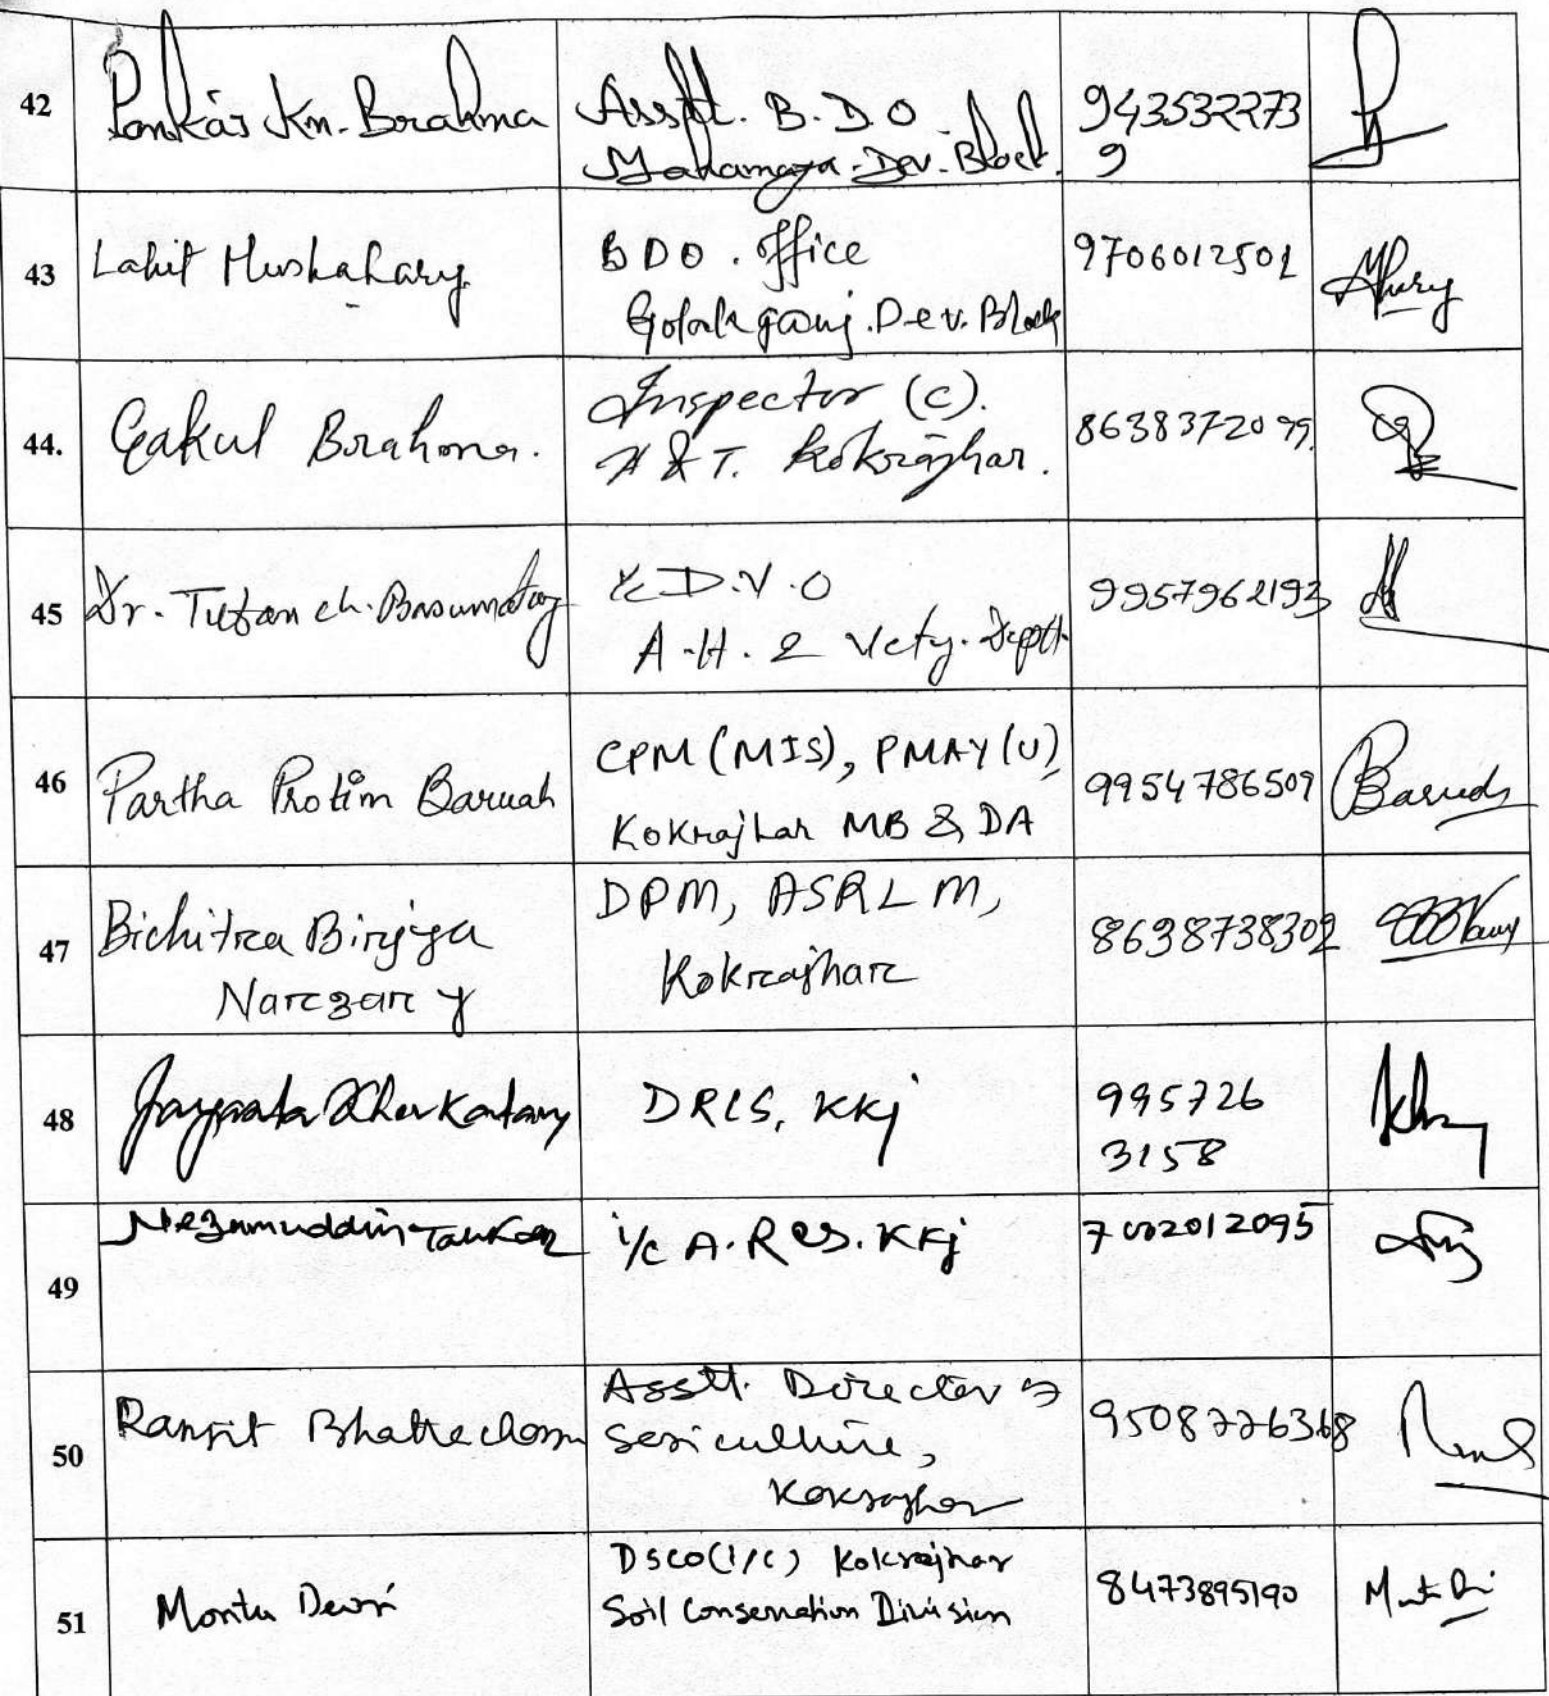 42
Pankaj Kr. Brahma
Asstt. B.D.O
Mahamaya Dev. Block.
943532273
9
43
Lahit Mushahary
BDO. office
Golakganj. Dev. Block
9706012501
44.
Gakul Brahma.
Inspector (C).
H & T. Kokrajhar.
45
Dr. Tufan ch. Basumatary
D.V.O
A.H. & Vety. Deptt.
9957962193
46
Partha Protim Baruah
CPM (MIS), PMAY (U),
Kokrajhar MB & DA
9954786509
Baruah
47
Bichitra Birjiya
Narzary
DPM, ASRLM,
Kokrajhar
8638738302
48
DRCS, KKj
995726
3158
49
Nezamuddin
i/c A.RCS. KKj
7002012095
50
Ranjit
Asstt. Director of
Sericulture,
Kokrajhar
51
Montu Deori
DSCO(I/C) Kokrajhar
Soil Conservation Division
8473895190